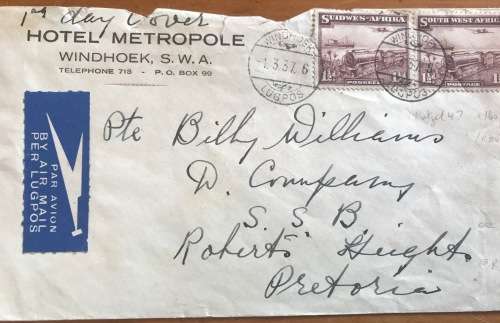 1st day Cover
HOTEL METROPOLE
WINDHOEK, S. W. A.
TELEPHONE 713 - P. O. BOX 99
SUIDWES-AFRIKA
SOUTH WEST AFRICA
1½D
1½D
POSSEËL
POSTAGE
WINDHOEK
-1.3.37.6
LUGPOS
WINDHOEK
LUGPOS
PAR AVION
BY AIR MAIL
PER LUGPOS
Pte Billy Williams
D. Company
S. S. B
Roberts Heights
Pretoria